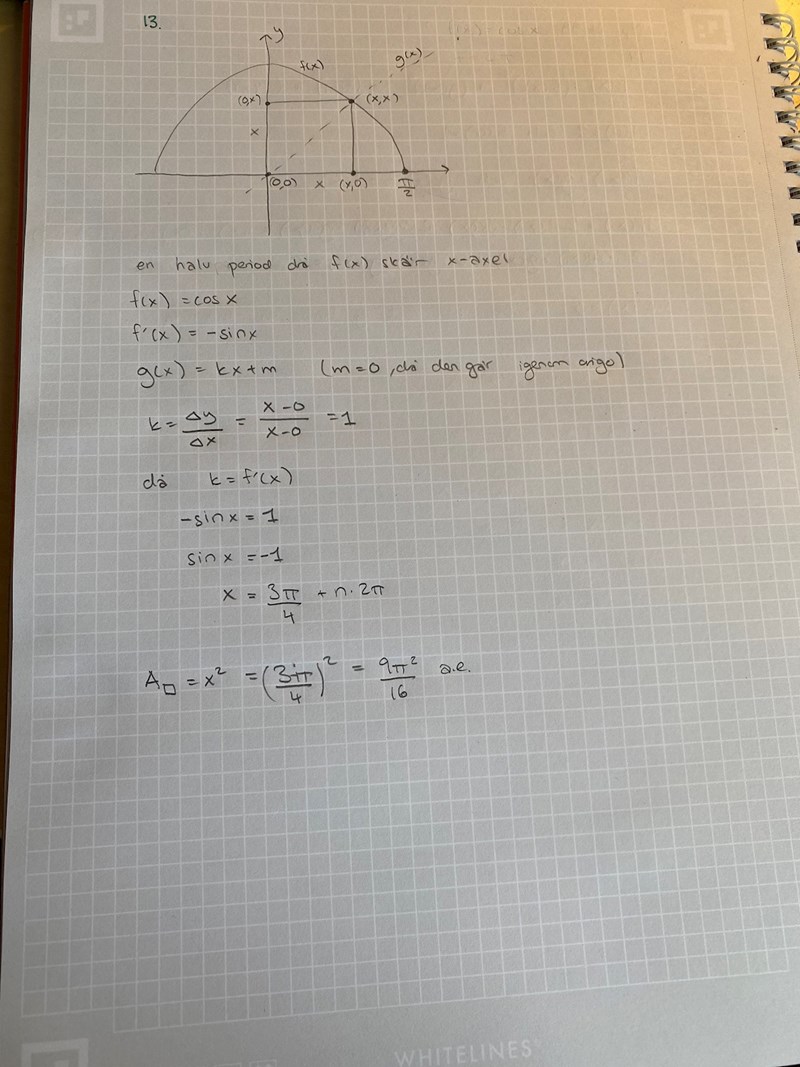 13.
y
f(x)
g(x)
(0,x)
(x,x)
x
(0,0)
x
(x,0)
π/2
en halv period då f(x) skär x-axel
f(x) = cos x
f'(x) = -sinx
g(x) = kx+m (m=0, då den går igenom origo)
k = Δy/Δx = x-0/x-0 = 1
då k = f'(x)
-sin x = 1
sin x = -1
x = 3π/4 + n·2π
A□ = x² = (3π/4)² = 9π²/16 a.e.
WHITELINES